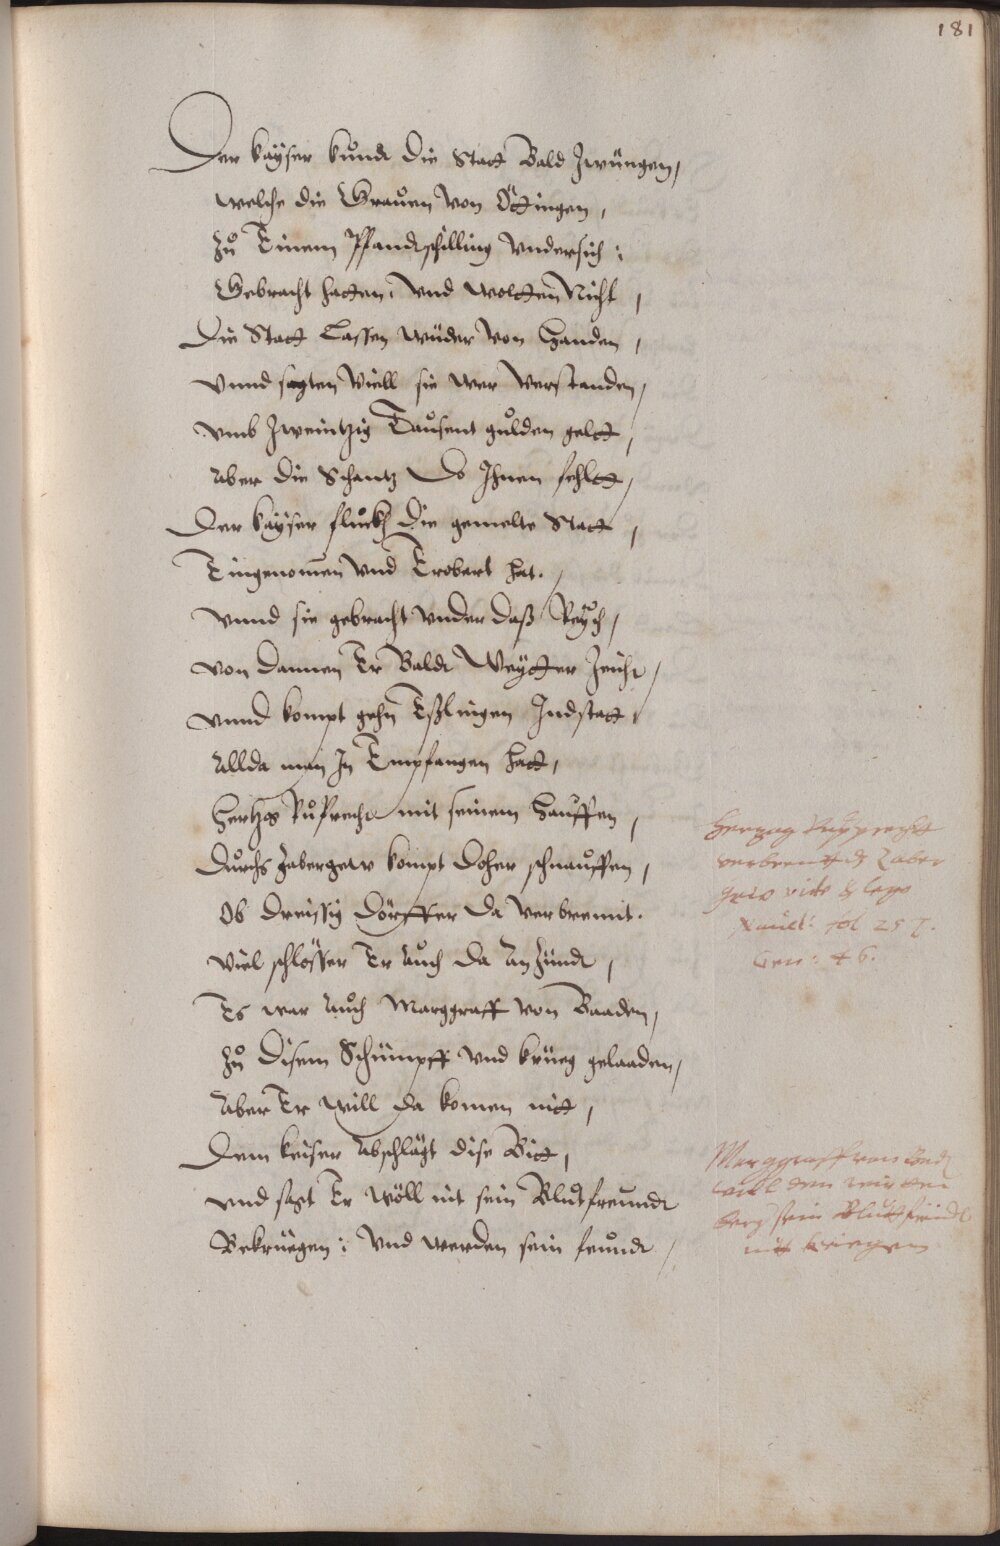 181
Der kaÿser kůndt die Statt Bald Zwüngen,
welche die Grauen von Öttingen,
Zů Einem Pfandtschilling vndersich:
Gebracht hatten, vnd woltten Nicht,
Die Statt Lassen wüder von Handen,
vnnd sagten Viell sie wer verstanden,
vmb Zweintzig Tausent gulden geltt,
Aber die Schantz do Ihnen fehltt,
Der kaÿser fluckh die gemelte Statt,
Eingenomen vnd Erobert hat.
vnnd sie gebracht vnder daß Reÿch,
von dannen Er Baldt Weÿtter Zeicht,
vnnd kompt gehn Eßlingen Indstatt,
Allda man In Empfangen hatt,
Hertzog Ruprecht mit seinem Hauffen,
Durchs Zabergew kompt doher schnauffen,
Ob dreissig Dörffer da verbrennt.
Viel schlösser Er Auch da An Zündt,
Es war Auch Marggraff von Baaden,
Zů disem Schümpff vnd krüeg gelaaden,
Aber Er will da komen nitt,
Dem keiser Abschlägt dise Bitt,
vnd sagt Er wöll nit sein Blutfreundt
Bekrüegen: vnd werden sein feundt
Herzog Rupprecht
verbrentt dz Zaber
gew vide
Naucl: fol 257.
Gen: 46.
Marggraff von Bad
will den wirtten
berg sein Blutfreündt
nit kriegen